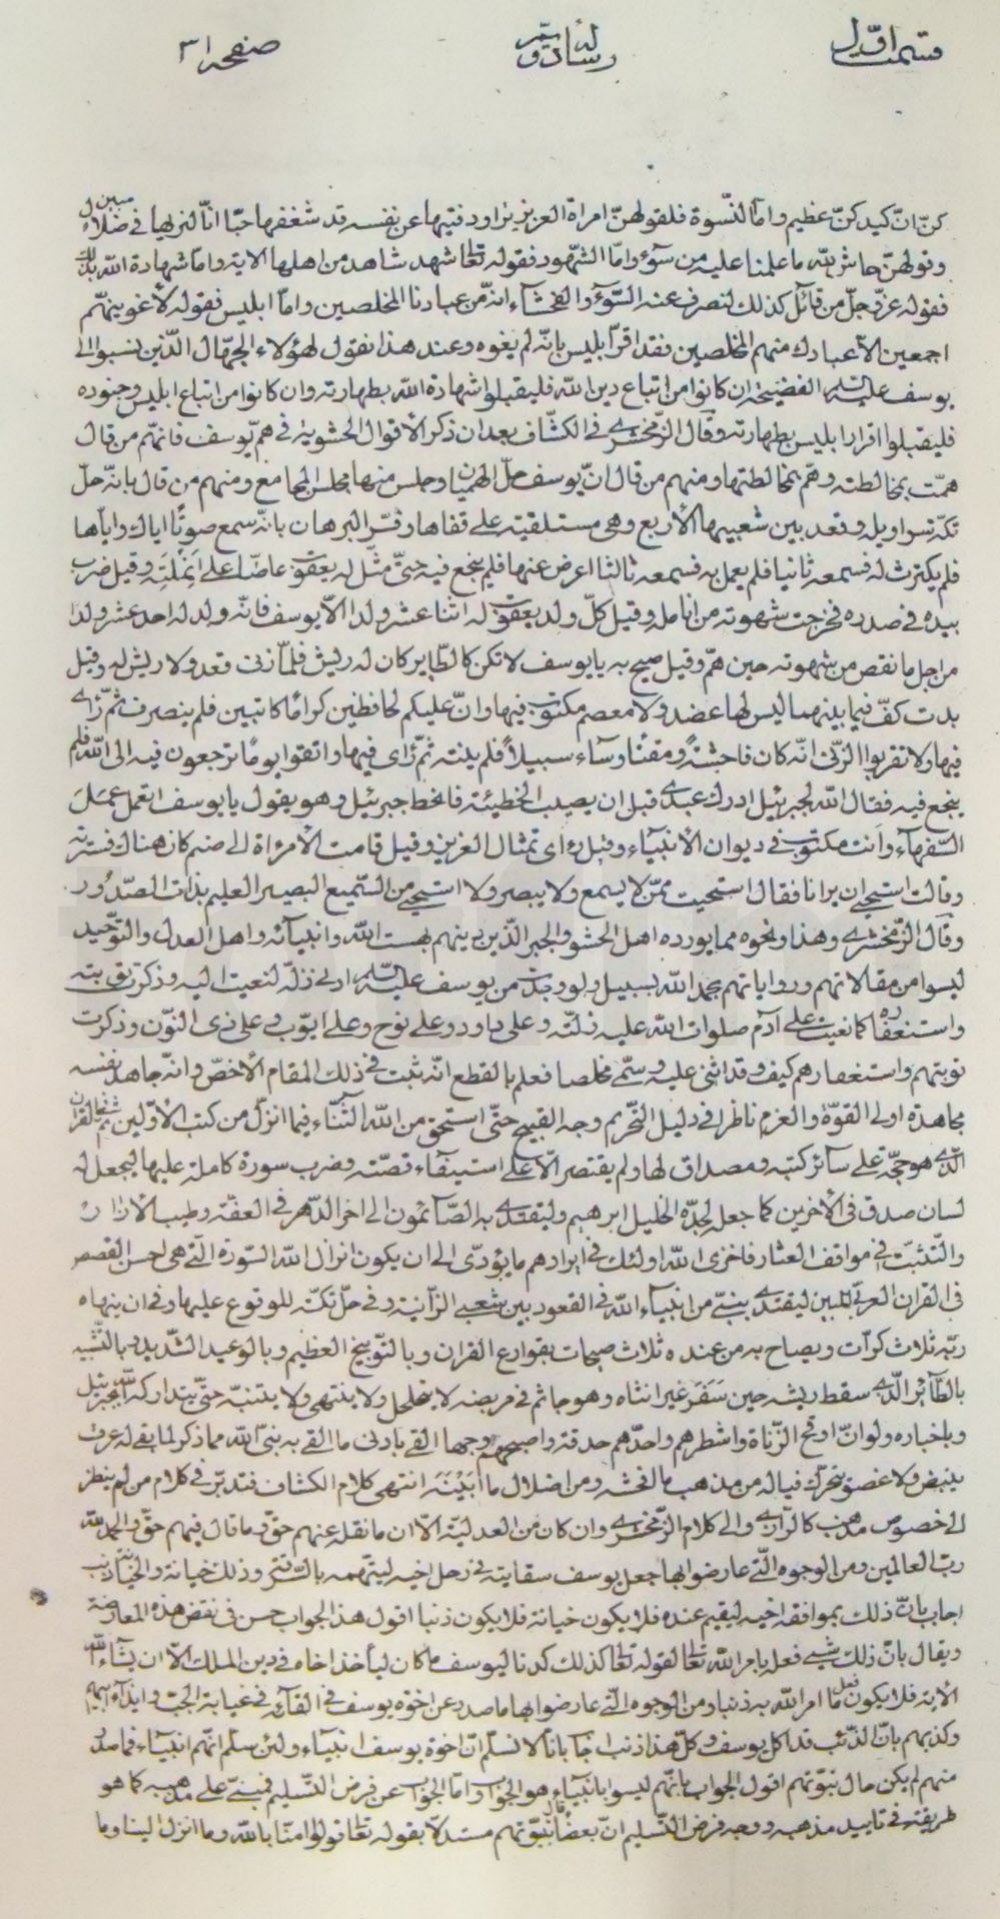 قسمت اوّل
رسالهٔ
صفحه ٣١
كنّ انّ كيدكنّ عظيم وامّا النّسوة فلقولهنّ امراة العزيز تراود فتيها عن نفسه قد شغفها حبّا انّا لنريها فى ضلال مبين
وقولهنّ حاش لله ما علمنا عليه من سوٓء وامّا الشّهود فقوله تعالى شهد شاهد من اهلها الاية وامّا شهادة الله بذلك
فقوله عزّ وجلّ من قائل كذلك لنصرف عنه السّوٓء والفحشآء انه من عبادنا المخلصين وامّا ابليس فقوله لأغوينّهم
اجمعين الاّ عبادك منهم المخلصين فقد اقرّ ابليس بانّه لم يغوه وعند هذا نقول لهؤلاء الجهّال الّذين نسبوا الى
يوسف عليه السّلم الفضيحة ان كانوا من اتباع دين الله فليقبلوا شهادة الله بطهارته وان كانوا من اتباع ابليس وجنوده
فليقبلوا اقرار ابليس بطهارته وقال الزّمخشرى فى الكشّاف بعد ان ذكر الأقوال الحشوية فى همّ يوسف فانهّم من قال
همّت بمخالطته وهمّ بمخالطتها ومنهم من قال انّ يوسف حلّ الهميان وجلس منها مجلس المجامع ومنهم من قال بانّه حلّ
تكّة سراويله وقعد بين شعبيها الأربع وهى مستلقية على قفاها وفسّر البرهان بانّه سمع صوتًا اياك واياها
فلم يكترث له فسمعه ثانيا فلم يعمل به فسمعه ثالثا اعرض عنها فلم ينجع فيه حتّى مثّل له يعقوب عاضّا على انملته وقيل ضرب
بيده فى صدره فخرجت شهوته من انامله وقيل كلّ ولد يعقوب له اثنا عشر ولدا الاّ يوسف فانّه ولد له احد عشر ولدا
من اجل ما نقص من شهوته حين همّ وقيل صيح به يا يوسف لا تكن كالطّاير كان له ريش فلمّا زنى قعد ولا ريش له وقيل
بدت كفّ فيما بينهما ليس لها عضد ولا معصم مكتوب فيها وانّ عليكم لحافظين كرامًا كاتبين فلم ينصرف ثمّ رأى
فيها ولا تقربوا الزّنى انّه كان فاحشةً ومقتًا وسآء سبيلاً فلم ينته ثمّ رأى فيها واتقوا يومًا ترجعون فيه الى الله فلم
ينجع فيه فقال الله لجبرئيل ادرك عبدى قبل ان يصيب الخطيئة فانحط جبرئيل وهو يقول يا يوسف اتعمل عمل
السّفهآء وانت مكتوب فى ديوان الأنبيآء وقيل رءاى تمثال العزيز وقيل قامت الأمراة الى صنم كان هناك فسترته
وقالت استحيى ان يرانا فقال استحييت ممّن لا يسمع ولا يبصر ولا استحيى من السّميع البصير العليم بذات الصّدور
وقال الزّمخشرى وهذا ونحوه مما يورده اهل الحشو والجبر الّذين دينهم بهت الله وانبيآئه واهل العدل والتّوحيد
ليسوا من مقالاتهم ورواياتهم بحمد الله بسبيل ولو وجدت من يوسف عليه السّلم ادنى زلّة لنعيت اليه وذكرت توبته
واستغفاره كما نعيت على آدم صلوات الله عليه زلّته وعلى داود وعلى نوح وعلى ايّوب وعلى ذى النّون وذكرت
توبتهم واستغفارهم كيف وقد اثنى عليه وسمّى مخلصا فعلم بالقطع انّه ثبت فى ذلك المقام الأخصّ وانّه جاهد نفسه
مجاهدة اولى القوّة والعزم ناظرا فى دليل التّحريم وجه القبيح حتّى استحقّ من الله الثّنآء فيما انزل من كتب الأوّلين ثمّ القرآن
الّذى هو حجّة على سائر كتبه ومصداق لها ولم يقتصر الاّ على استيفآء قصّته وضرب سورة كاملة عليها ليجعل له
لسان صدق فى الأخرين كما جعل لجدّه الخليل ابرهيم وليقتدى به الصّآئمون الى اخر الدّهر فى العفّة وطيب الأزار
والتّثبّت فى مواقف العثار فاخزى الله اولئك فى ايرادهم ما يؤدّى الى ان يكون انزال الله السّورة الّتى هى احسن القصص
فى القران العربى المبين ليقتدى بنبىّ من انبيآء الله فى القعود بين شعبى الزّانية وفى حلّ تكّته للوقوع عليها وفى ان ينهاه
ربّه ثلاث كرآت ويصاح به من عنده ثلاث صيحات بقوارع القران وبالتّوبيخ العظيم وبالوعيد الشّديد وبالتّشبيه
بالطّآئر الّذى سقط ريشه حين سفر غير انثاه وهو جاثم فى مربضه لا يتحلحل ولا ينتهى ولا يتنبّه حتّى يتداركه الله بجبرئيل
وباخباره ولو انّ اوقح الزّناة واشطرهم واحدّهم حدقة واصحّهم وجها القى بادنى ما القى به نبىّ الله مما ذكر لما بقى له عرق
ينبض ولا عضو يتحرّك فياله من مذهب ما افحشه ومن اضلال ما ابينه انتهى كلام الكشاف فتدبّر فى كلام من لم ينظر
الى خصوص مذهب كالرّازى والى كلام الزّمخشرى وان كان من العدليّة الاّ ان ما نقله عنهم حقّ وما قال فيهم حقّ والحمد لله
ربّ العالمين ومن الوجوه الّتى عارضوا بها جعل يوسف سقايته فى رحل اخيه ليتهمه بالسّرقة وذلك خيانة والخيانة ذنب
اجاب بانّ ذلك بموافقة اخيه ليقيم عنده فلا يكون خيانة فلا يكون ذنبا اقول هذا الجواب حسن فى نقض هذه المعارضة
ويقال بانّ ذلك شىء فعله بامر الله تعالى لقوله تعالى كذلك كدنا ليوسف ما كان ليأخذ اخاه فى دين الملك الاّ ان يشآء الله
الآية فلا يكون فعل ما امر الله به ذنبا ومن الوجوه الّتى عارضوا بها ما صدر عن اخوة يوسف فى القآئه فى غيابة الجبّ وايذآء ابيهم
وكذبهم بانّ الذّئب قد اكل يوسف وكلّ هذا ذنب اجاب انّا لا نسلّم انّ اخوة يوسف انبيآء ولئن سلّم انّهم انبيآء فما صدر
منهم لم يكن حال نبوّتهم اقول الجواب بانّهم ليسوا بانبيآء هو الجواب وامّا الجواب عن فرض التّسليم فمبنىّ على مذهبه كما هو
طريقته فى تاييد مذهبه ووجه فرض التّسليم انّ بعضا قال بنبوّتهم مستدلاّ بقوله تعالى قولوا امنّا بالله وما انزل الينا وما